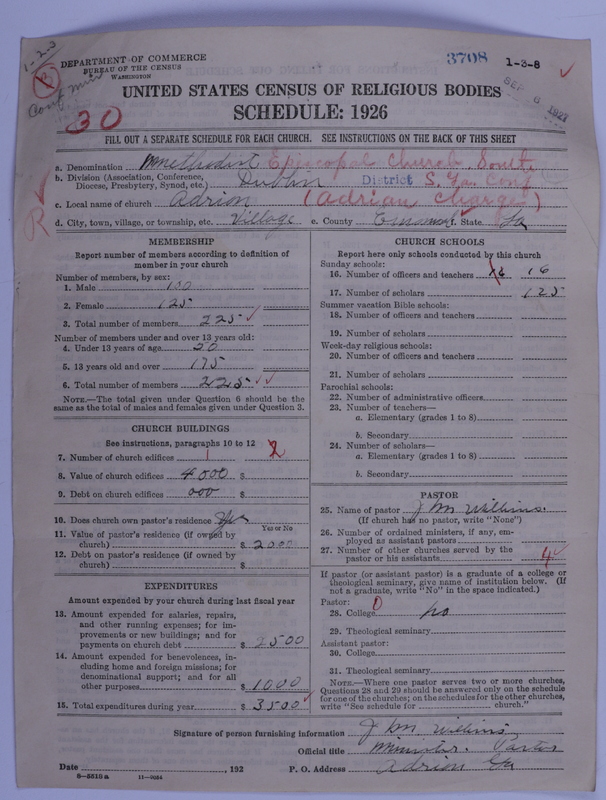 1-2-3
DEPARTMENT OF COMMERCE
BUREAU OF THE CENSUS
WASHINGTON
3708
1-3-8
SEP 6 1927
UNITED STATES CENSUS OF RELIGIOUS BODIES
SCHEDULE: 1926
30
FILL OUT A SEPARATE SCHEDULE FOR EACH CHURCH. SEE INSTRUCTIONS ON THE BACK OF THIS SHEET
a. Denomination Methodist Episcopal Church, South
b. Division (Association, Conference, Diocese, Presbytery, Synod, etc.) Dublin District S. Ga. Conf
c. Local name of church Adrion (Adrian charge)
R
d. City, town, village, or township, etc. Village e. County Emanuel f. State Ga
MEMBERSHIP
Report number of members according to definition of
member in your church
Number of members, by sex:
1. Male 100
2. Female 125
3. Total number of members 225
Number of members under and over 13 years old:
4. Under 13 years of age 50
5. 13 years old and over 175
6. Total number of members 225
NOTE.—The total given under Question 6 should be the
same as the total of males and females given under Question 3.
CHURCH BUILDINGS
See instructions, paragraphs 10 to 12
7. Number of church edifices 1 2
8. Value of church edifices 4000 $
9. Debt on church edifices 000 $
10. Does church own pastor's residence Yes
Yes or No
11. Value of pastor's residence (if owned by
church) $ 2000
12. Debt on pastor's residence (if owned by
church) $
EXPENDITURES
Amount expended by your church during last fiscal year
13. Amount expended for salaries, repairs,
and other running expenses; for im-
provements or new buildings; and for
payments on church debt $ 2500
14. Amount expended for benevolences, in-
cluding home and foreign missions; for
denominational support; and for all
other purposes $ 1000
15. Total expenditures during year $ 3500
CHURCH SCHOOLS
Report here only schools conducted by this church
Sunday schools:
16. Number of officers and teachers 16
17. Number of scholars 125
Summer vacation Bible schools:
18. Number of officers and teachers
19. Number of scholars
Week-day religious schools:
20. Number of officers and teachers
21. Number of scholars
Parochial schools:
22. Number of administrative officers
23. Number of teachers—
a. Elementary (grades 1 to 8)
b. Secondary
24. Number of scholars—
a. Elementary (grades 1 to 8)
b. Secondary
PASTOR
25. Name of pastor J M Wilkins.
(If church has no pastor, write "None")
26. Number of ordained ministers, if any, em-
ployed as assistant pastors
27. Number of other churches served by the
pastor or his assistants 4
If pastor (or assistant pastor) is a graduate of a college or
theological seminary, give name of institution below. (If
not a graduate, write "No" in the space indicated.)
Pastor: 0
28. College no
29. Theological seminary
Assistant pastor:
30. College
31. Theological seminary
NOTE.—Where one pastor serves two or more churches,
Questions 28 and 29 should be answered only on the schedule
for one of the churches; on the schedules for the other churches,
write "See schedule for church."
Signature of person furnishing information J M Wilkins
Official title Minister. Pastor
Date , 192 P. O. Address Adrion Ga
8-5519 a 11-9034